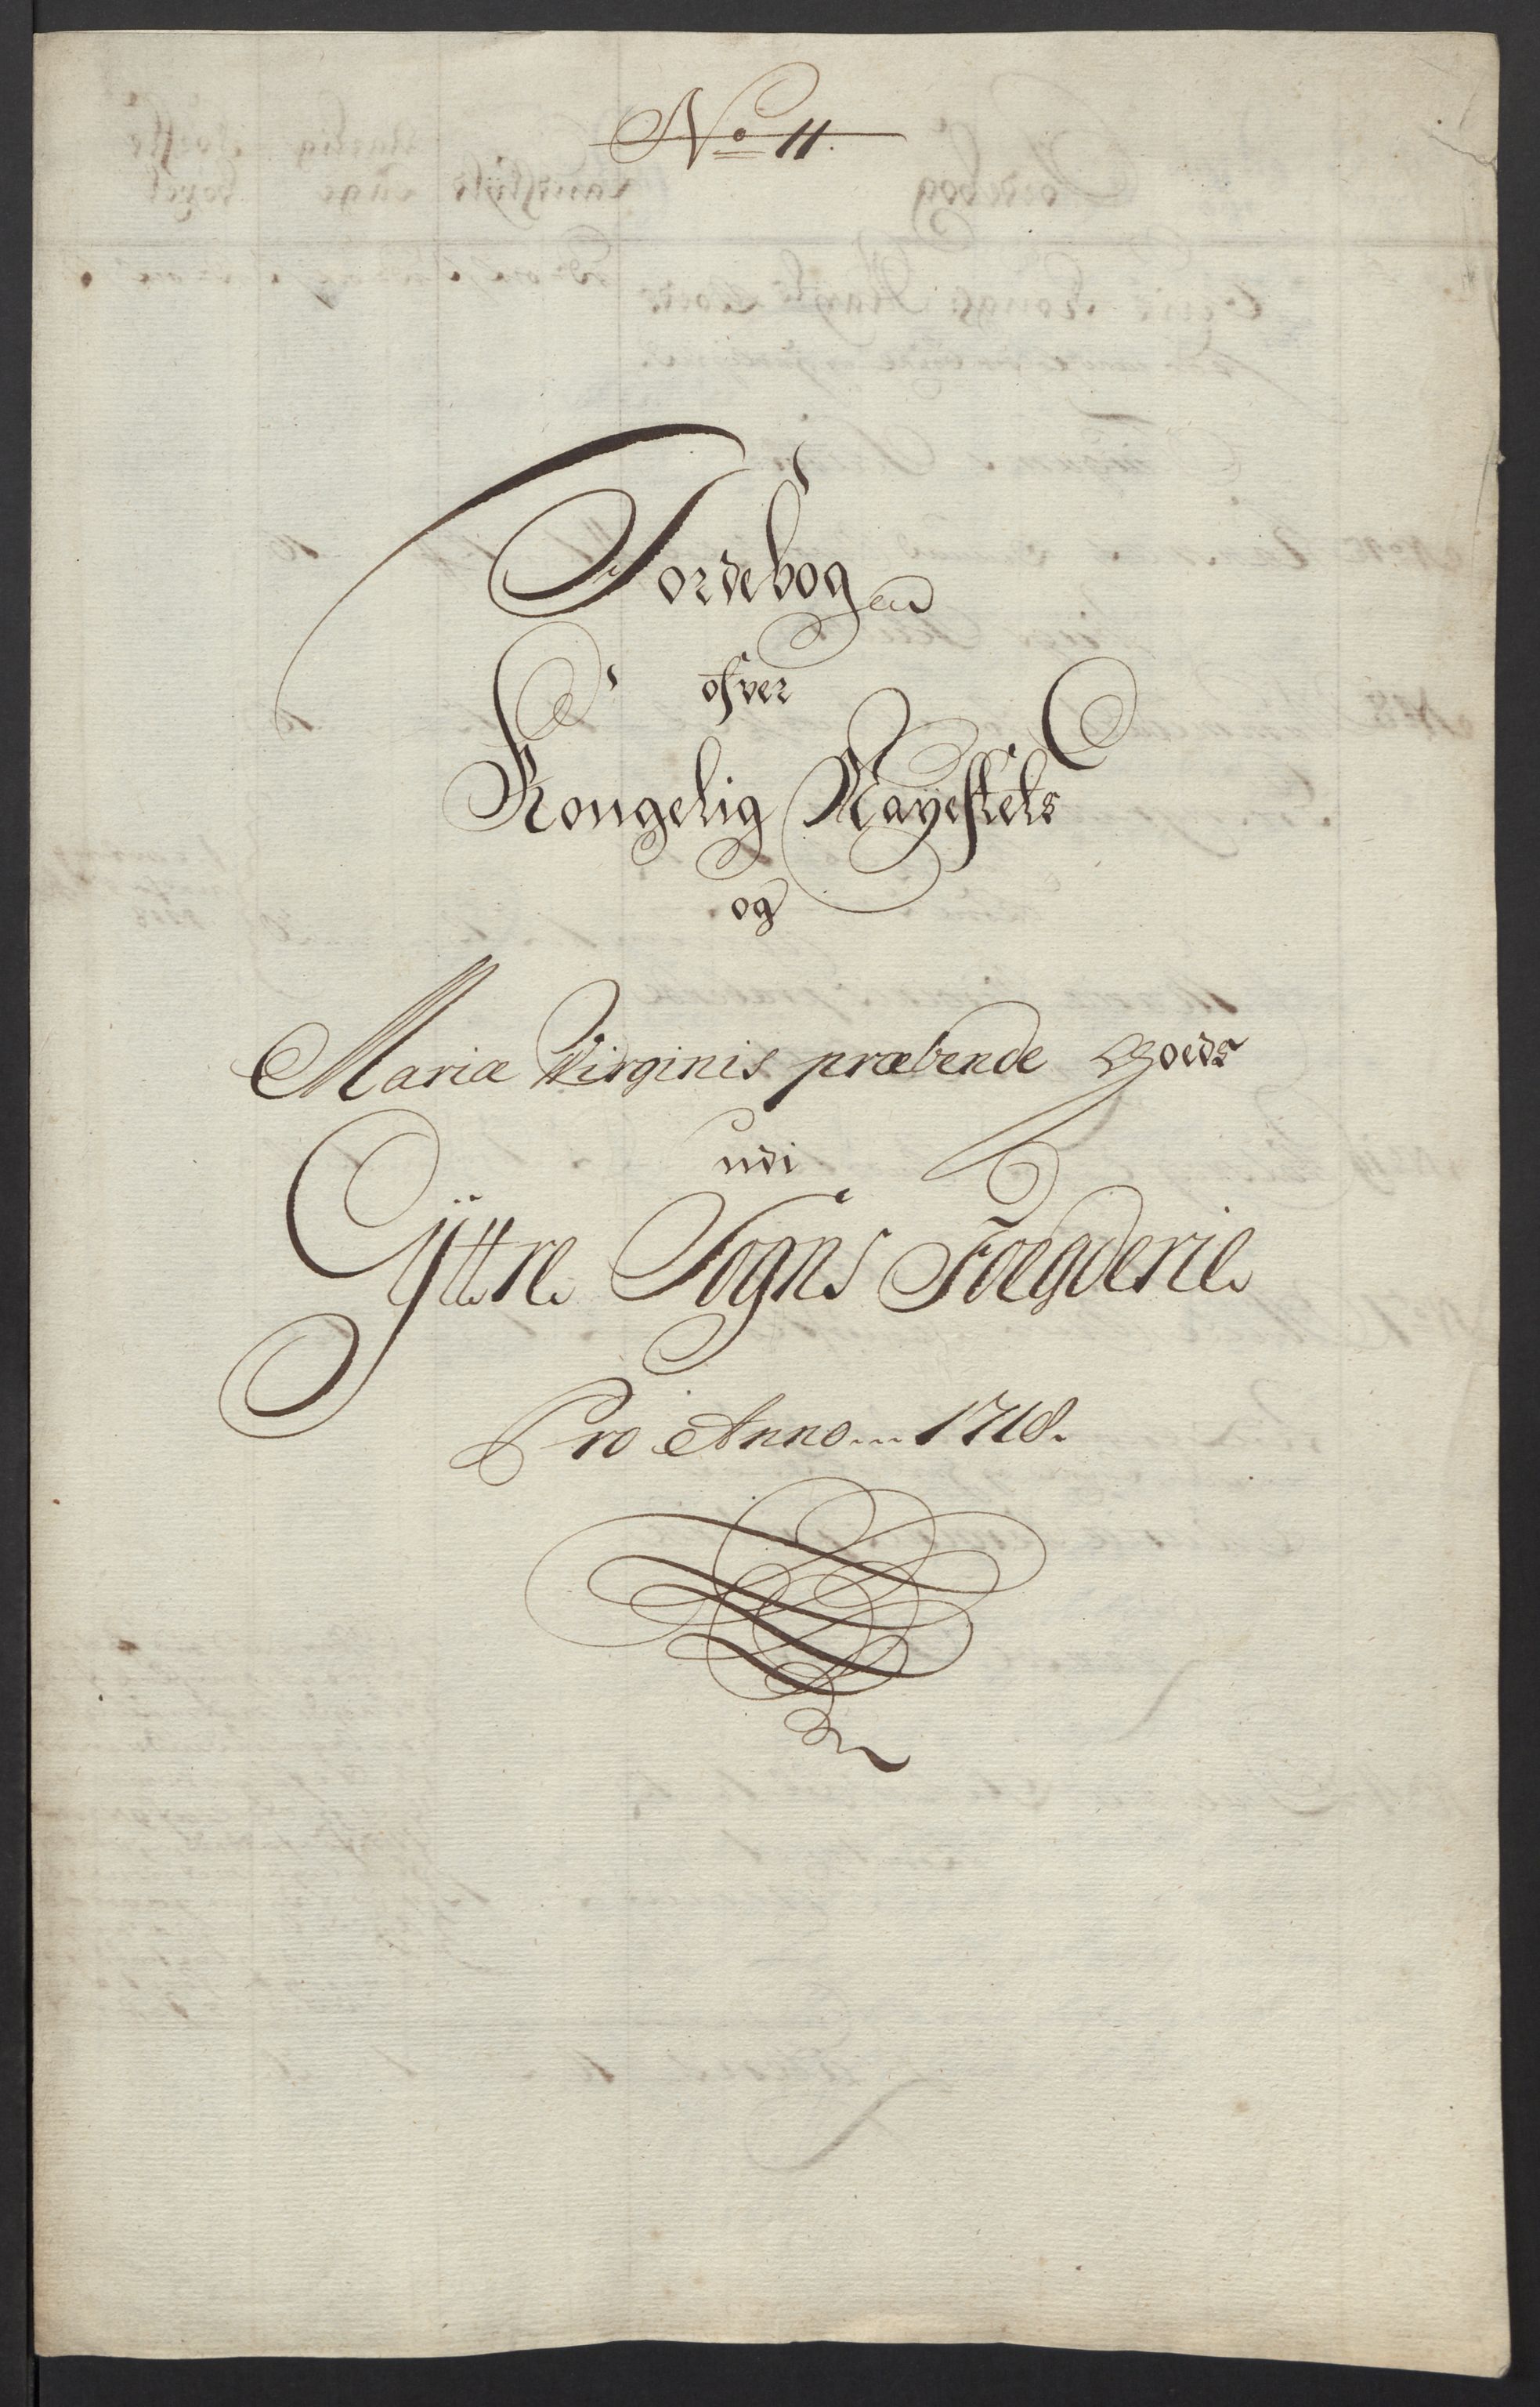 No 11.
Jordebogen
ofver
Kongelig Mayestets
og
Mariæ Virginis præbende Goeds
udi
Yttre Sogns Foegderie
Pro Anno... 1718.